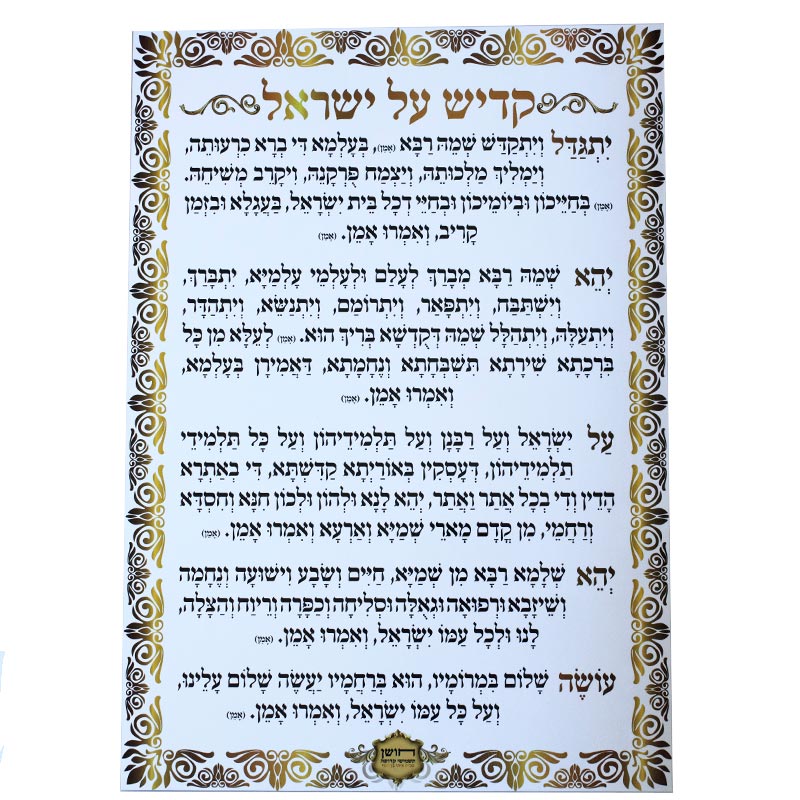 קדיש על ישראל
יִתְגַּדַּל וְיִתְקַדַּשׁ שְׁמֵהּ רַבָּא (אָמֵן), בְּעָלְמָא דִּי בְרָא כִרְעוּתֵה,
וְיַמְלִיךְ מַלְכוּתֵהּ, וְיַצְמַח פֻּרְקָנֵהּ, וִיקָרֵב מְשִׁיחֵהּ.
(אָמֵן) בְּחַיֵּיכוֹן וּבְיוֹמֵיכוֹן וּבְחַיֵּי דְכָל בֵּית יִשְׂרָאֵל, בַּעֲגָלָא וּבִזְמַן
קָרִיב, וְאִמְרוּ אָמֵן. (אָמֵן)
יְהֵא שְׁמֵהּ רַבָּא מְבָרַךְ לְעָלַם וּלְעָלְמֵי עָלְמַיָּא, יִתְבָּרַךְ,
וְיִשְׁתַּבַּח, וְיִתְפָּאַר, וְיִתְרוֹמַם, וְיִתְנַשֵּׂא, וְיִתְהַדָּר,
וְיִתְעַלֶּה, וְיִתְהַלָּל שְׁמֵהּ דְּקֻדְשָׁא בְּרִיךְ הוּא. (אָמֵן) לְעֵלָּא מִן כָּל
בִּרְכָתָא שִׁירָתָא תִּשְׁבְּחָתָא וְנֶחָמָתָא, דַּאֲמִירָן בְּעָלְמָא,
וְאִמְרוּ אָמֵן. (אָמֵן)
עַל יִשְׂרָאֵל וְעַל רַבָּנָן וְעַל תַּלְמִידֵיהוֹן וְעַל כָּל תַּלְמִידֵי
תַלְמִידֵיהוֹן, דְּעָסְקִין בְּאוֹרַיְתָא קַדִּשְׁתָּא, דִּי בְאַתְרָא
הָדֵין וְדִי בְכָל אֲתַר וַאֲתַר, יְהֵא לָנָא וּלְהוֹן וּלְכוֹן חִנָּא וְחִסְדָּא
וְרַחֲמֵי, מִן קֳדָם מָארֵי שְׁמַיָּא וְאַרְעָא וְאִמְרוּ אָמֵן. (אָמֵן)
יְהֵא שְׁלָמָא רַבָּא מִן שְׁמַיָּא, חַיִּים וְשָׂבָע וִישׁוּעָה וְנֶחָמָה
וְשֵׁיזָבָא וּרְפוּאָה וּגְאֻלָּה וּסְלִיחָה וְכַפָּרָה וְרֵיוַח וְהַצָּלָה,
לָנוּ וּלְכָל עַמּוֹ יִשְׂרָאֵל, וְאִמְרוּ אָמֵן. (אָמֵן)
עוֹשֶׂה שָׁלוֹם בִּמְרוֹמָיו, הוּא בְּרַחֲמָיו יַעֲשֶׂה שָׁלוֹם עָלֵינוּ,
וְעַל כָּל עַמּוֹ יִשְׂרָאֵל, וְאִמְרוּ אָמֵן. (אָמֵן)
חושן
תשמישי קדושה